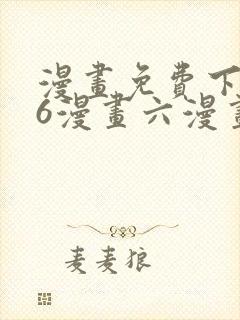 漫畫免費下
6漫畫六漫畫
麦麦狼